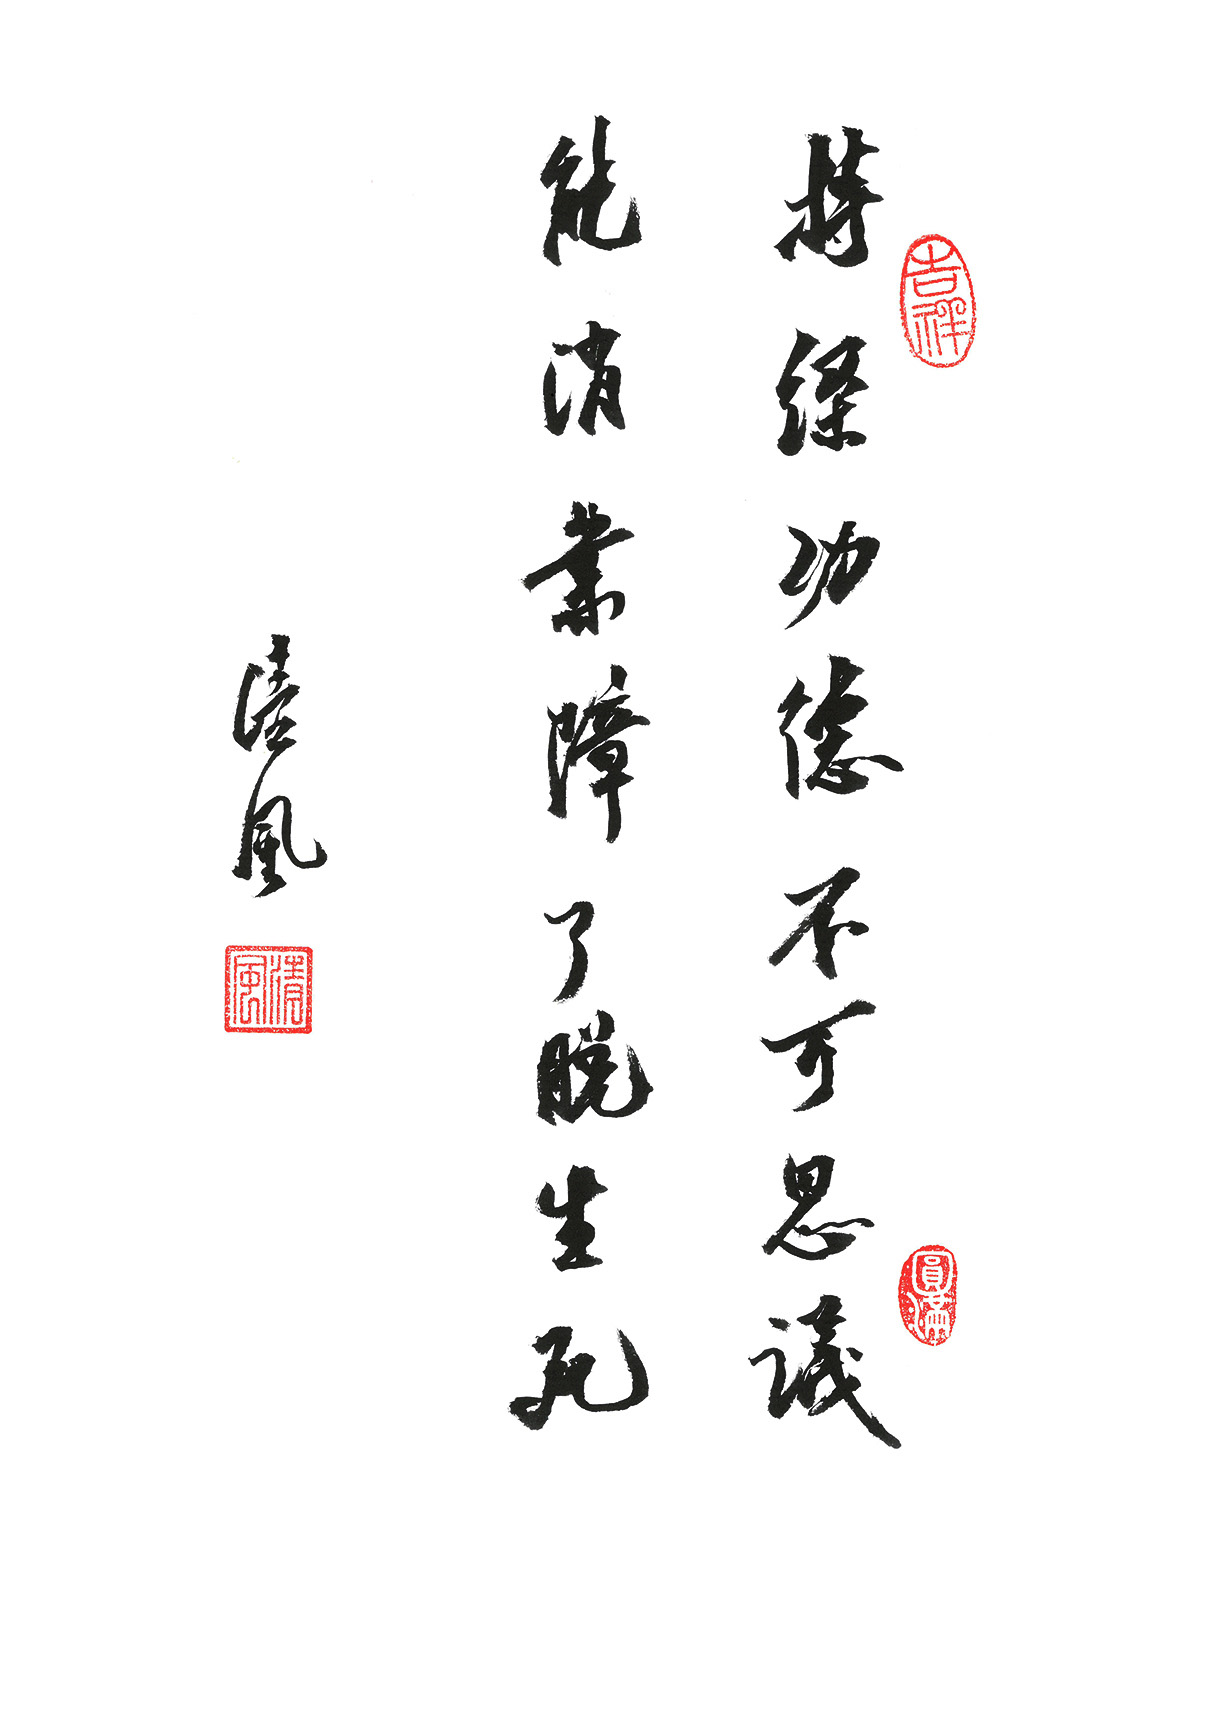 吉祥
持經功德不可思議
圓滿
能消業障了脫生死
清風
清風